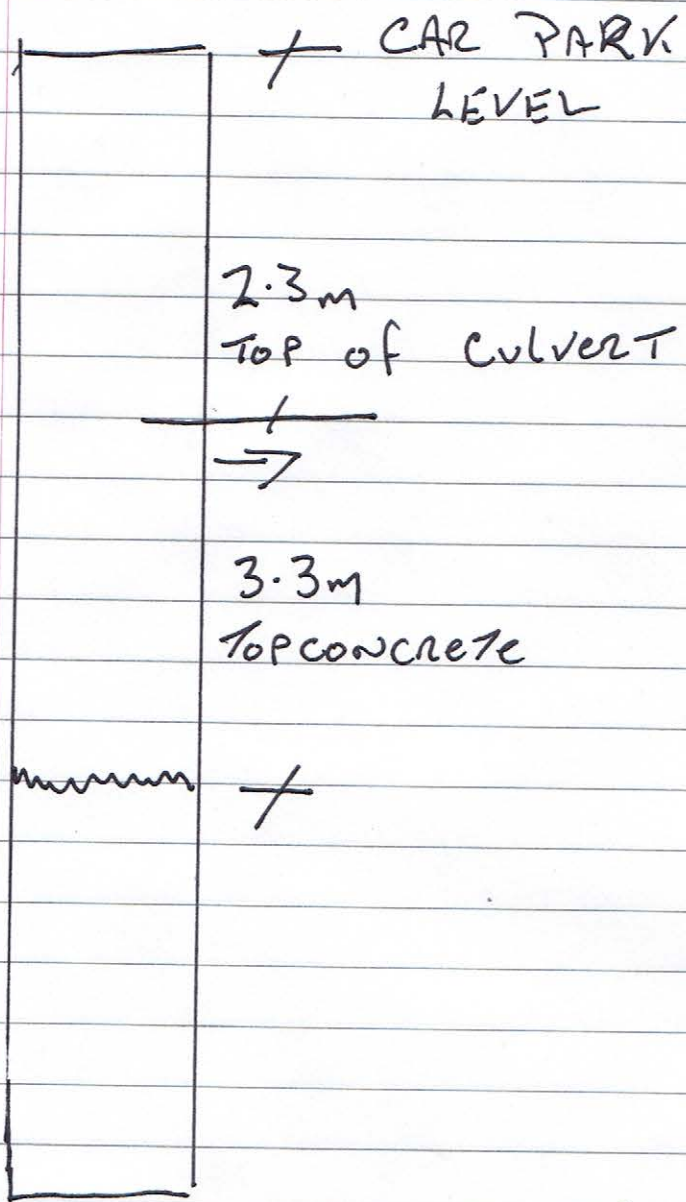 CAR PARK
LEVEL
2.3m
TOP of CulverT
3.3m
TOPCONCReTe